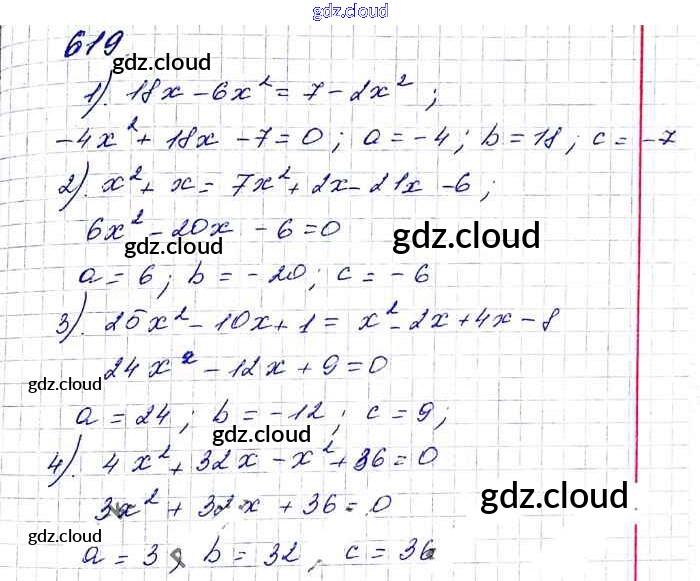 gdz.cloud
619
gdz.cloud
1). 18x - 6x² = 7 - 2x² ;
-4x² + 18x - 7 = 0 ; a = -4 ; b = 18 ; c = -7
gdz.cloud
2). x² + x = 7x² + 2x - 21x - 6 ;
6x² - 20x - 6 = 0
gdz.cloud
gdz.cloud
a = 6 ; b = -20 ; c = -6
3). 25x² - 10x + 1 = x² - 2x + 4x - 8
24x² - 12x + 9 = 0
gdz.cloud
gdz.cloud
a = 24 ; b = -12 ; c = 9 ;
gdz.cloud
4). 4x² + 32x - x² + 36 = 0
3x² + 32x + 36 = 0
gdz.cloud
gdz.cloud
a = 3 ; b = 32 , c = 36